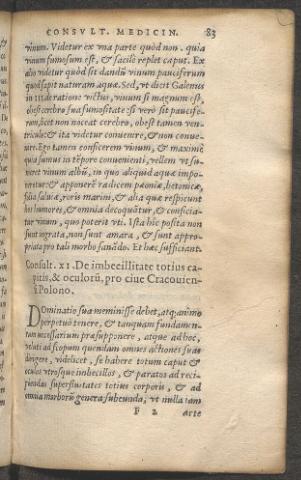 CONSVLT. MEDICIN. 83
vinum. Videtur ex vna parte quòd non. quia
vinum fumosum est, & facilè replet caput. Ex
alio videtur quòd sit dandũ vinum pauciferum
quòd sapit naturam aquæ. Sed, vt dicit Galenus
in III de ratione victus, vinum si magnum est,
officit cerebro sua fumositate: si verò sit paucife-
rum, licet non noceat cerebro, obest tamen ven-
triculo: & ita videtur conuenire, & non conue-
nire. Ego tamen conficerem vinum, & maximè
quia sumus in tẽpore conuenienti, vellem vt su-
meret vinum albũ, in quo aliquid aquæ impo-
neretur: & apponerẽ radicem pæoniæ, betonicæ,
folia saluiæ, roris marini, & alia quæ respiciunt
hos humores, & omnia decoquãtur, & conficia-
tur vinum, quo poterit vti. Ista hîc posita non
sunt ingrata, non sunt amara, & sunt appro-
priata pro tali morbo sanãdo. Et hæc sufficiant.
Consult. XI. De imbecillitate totius ca-
pitis, & oculorũ, pro ciue Cracouien-
si Polono.
Dominatio sua meminisse debet, atq; animo
perpetuò tenere, & tanquam fundamen-
tum necessarium præsupponere, atque ad hoc,
veluti ad scopum quendam omnes actiones suas
dirigere, videlicet, se habere totum caput &
oculos vtrosque imbecillos, & paratos ad reci-
piendas superfluitates totius corporis, & ad
omnia morborũ genera subeunda, vt nulla tam
F 2 arte